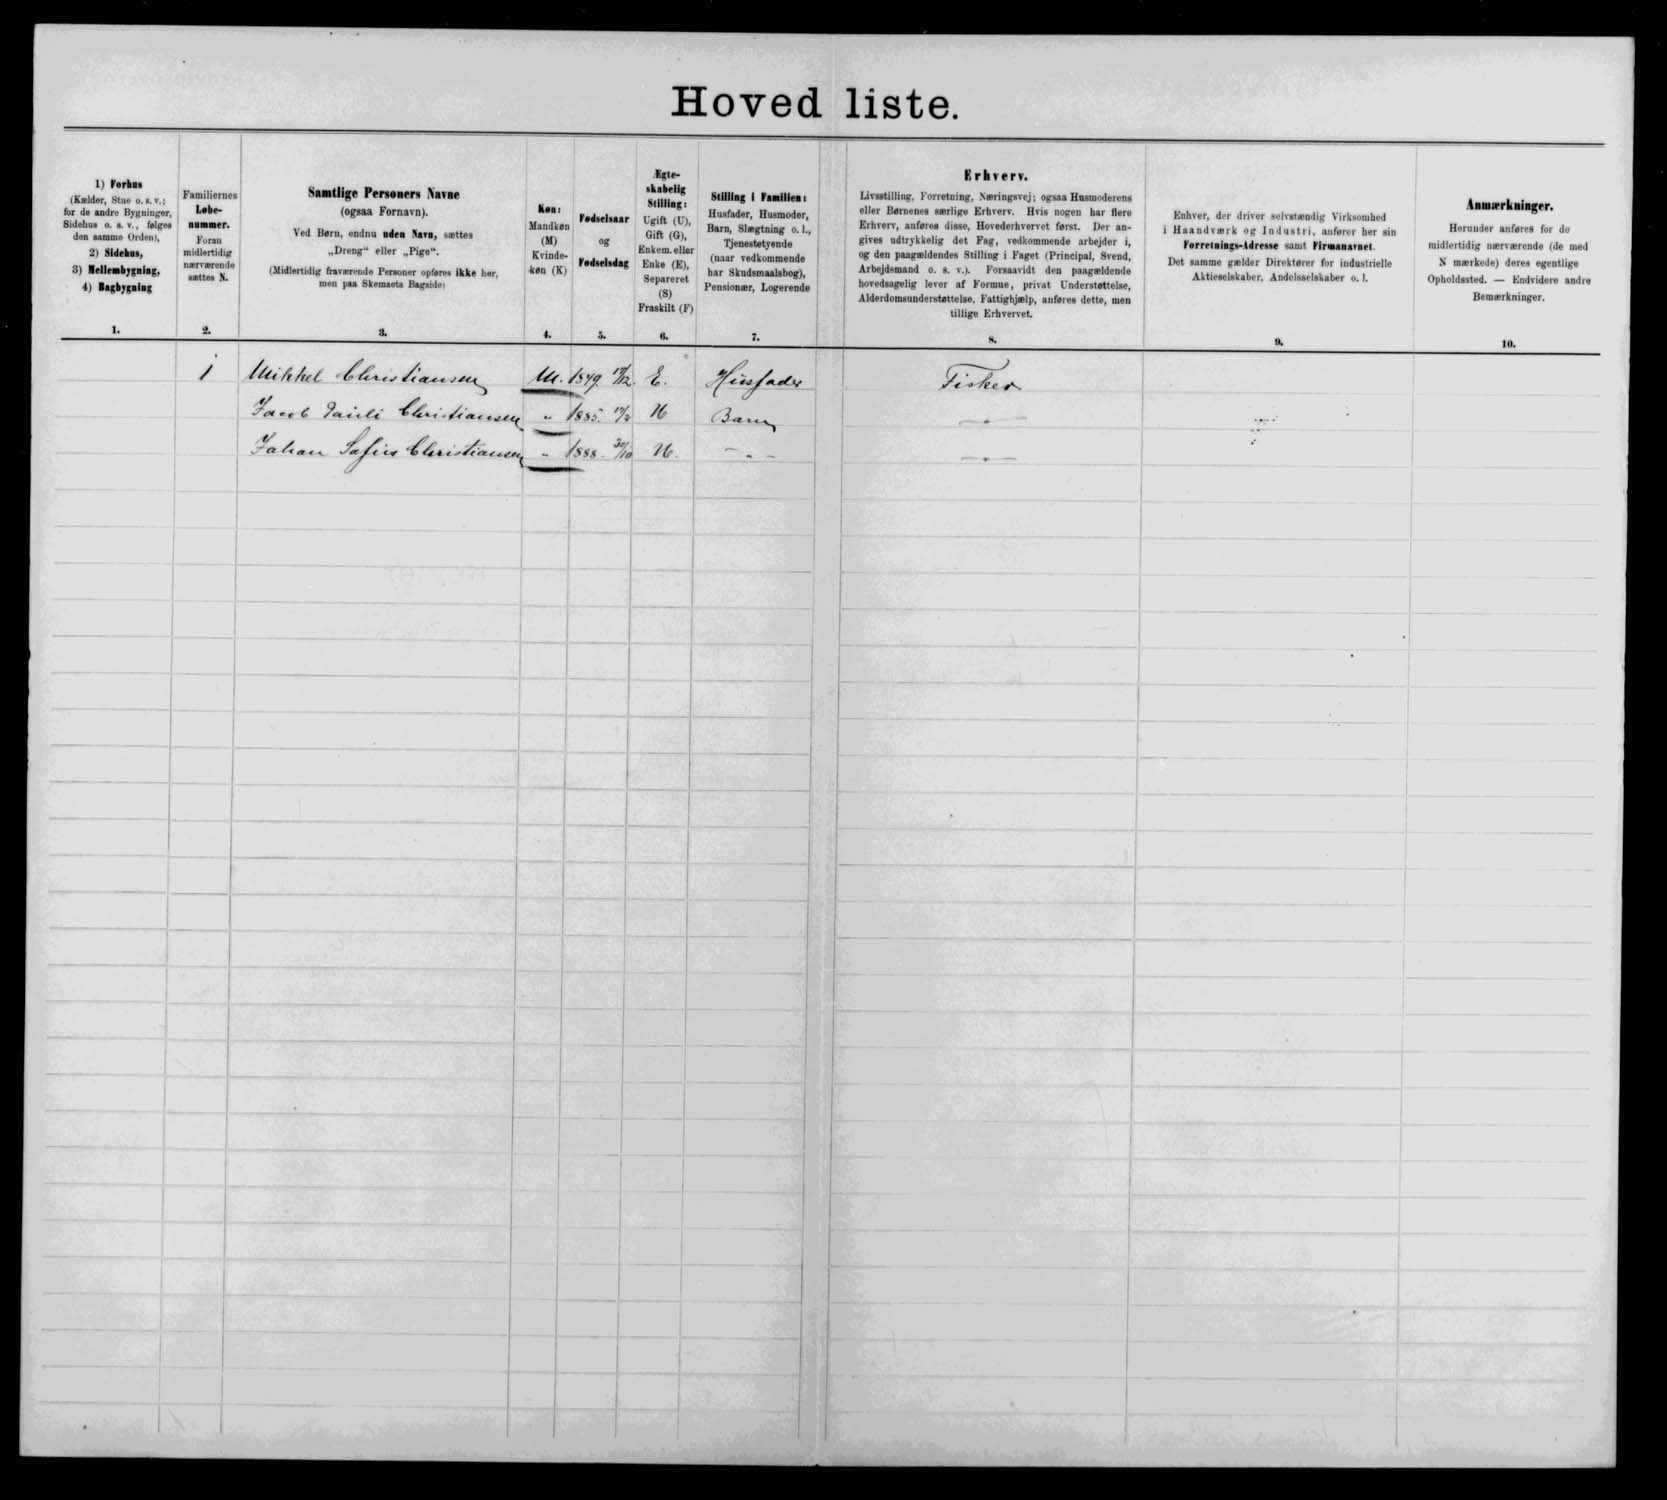 Hoved liste.
1) Forhus
(Kælder, Stue o. s. v.;
for de andre Bygninger,
Sidehus o. s. v., følges
den samme Orden),
2) Sidehus,
3) Mellembygning,
4) Bagbygning
1.
Familiernes
Løbe-
nummer.
Foran
midlertidig
nærværende
sættes N.
2.
Samtlige Personers Navne
(ogsaa Fornavn).
Ved Børn, endnu uden Navn, sættes
„Dreng“ eller „Pige“.
(Midlertidig fraværende Personer opføres ikke her,
men paa Skemaets Bagside)
3.
Køn:
Mandkøn
(M)
Kvinde-
køn (K)
4.
Fødselsaar
og
Fødselsdag
5.
Ægte-
skabelig
Stilling:
Ugift (U),
Gift (G),
Enkem. eller
Enke (E),
Separeret
(S)
Fraskilt (F)
6.
Stilling i Familien:
Husfader, Husmoder,
Barn, Slægtning o. l.,
Tjenestetyende
(naar vedkommende
har Skudsmaalsbog),
Pensionær, Logerende
7.
Erhverv.
Livsstilling, Forretning, Næringsvej; ogsaa Husmoderens
eller Børnenes særlige Erhverv. Hvis nogen har flere
Erhverv, anføres disse, Hovederhvervet først. Der an-
gives udtrykkelig det Fag, vedkommende arbejder i,
og den paagældendes Stilling i Faget (Principal, Svend,
Arbejdsmand o. s. v.). Forsaavidt den paagældende
hovedsagelig lever af Formue, privat Understøttelse,
Alderdomsunderstøttelse, Fattighjælp, anføres dette, men
tillige Erhvervet.
8.
Enhver, der driver selvstændig Virksomhed
i Haandværk og Industri, anfører her sin
Forretnings-Adresse samt Firmanavnet.
Det samme gælder Direktører for industrielle
Aktieselskaber, Andelsselskaber o. l.
9.
Anmærkninger.
Herunder anføres for de
midlertidig nærværende (de med
N mærkede) deres egentlige
Opholdssted. — Endvidere andre
Bemærkninger.
10.
1 Mikkel Christiansen M. 1849 E. Husfader Fisker
Jacob Pauli Christiansen „ 1885. 17/2 U Barn — „ —
Johan Sofus Christiansen „ 1888. 30/10 U. — „ — — „ —